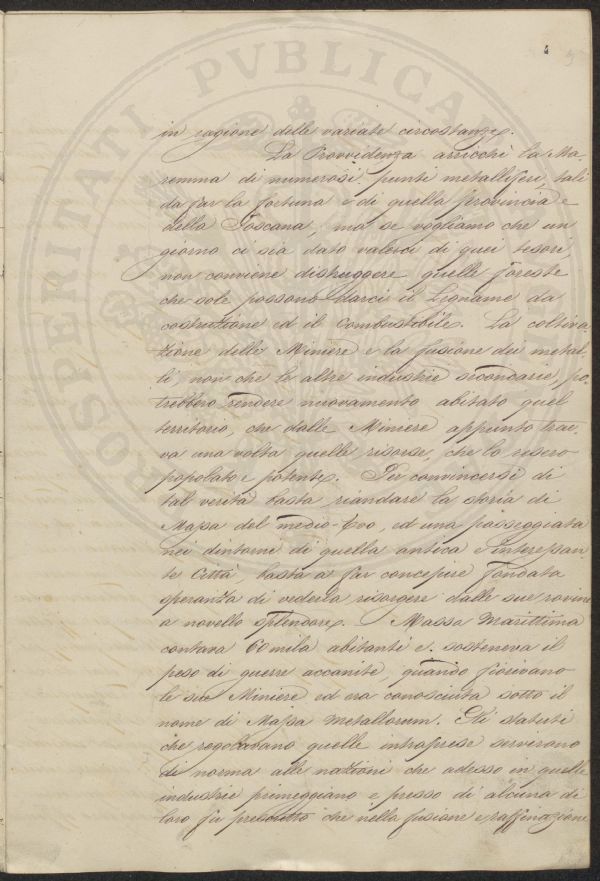 5
PROSPERITATI PVBLICAE
in ragione delle variate circostanze.
La Provvidenza arricchì la Ma-
remma di numerosi punti metalliferi, tali
da far la fortuna e di quella provincia e
della Toscana, ma se vogliamo che un
giorno ci sia dato valerci di quei tesori,
non conviene distruggere quelle foreste
che sole possono darci il Legname da
costruzione ed il Combustibile. La coltiva
zione delle Miniere e la fusione dei metal-
li, non che le altre industrie secondarie, po-
trebbero rendere nuovamente abitato quel
territorio, che dalle Miniere appunto trae-
va una volta quelle risorse, che lo resero
popolato e potente. Per convincersi di
tal verità basta riandare la storia di
Massa del medio-Evo, ed una passeggiata
nei dintorni di quella antica e interessan-
te Città, basta a far concepire fondata
speranza di vederla risorgere dalle sue rovine
a novello splendore. Massa Marittima
contava 60mila abitanti e sosteneva il
peso di guerre accanite, quando fiorivano
le sue Miniere ed era conosciuta sotto il
nome di Massa Metallorum. Gli statuti
che regolavano quelle intraprese servirono
di norma alle nazioni che adesso in quelle
industrie primeggiano e presso di alcuna di
loro fu prescritto che nella fusione e raffinazione